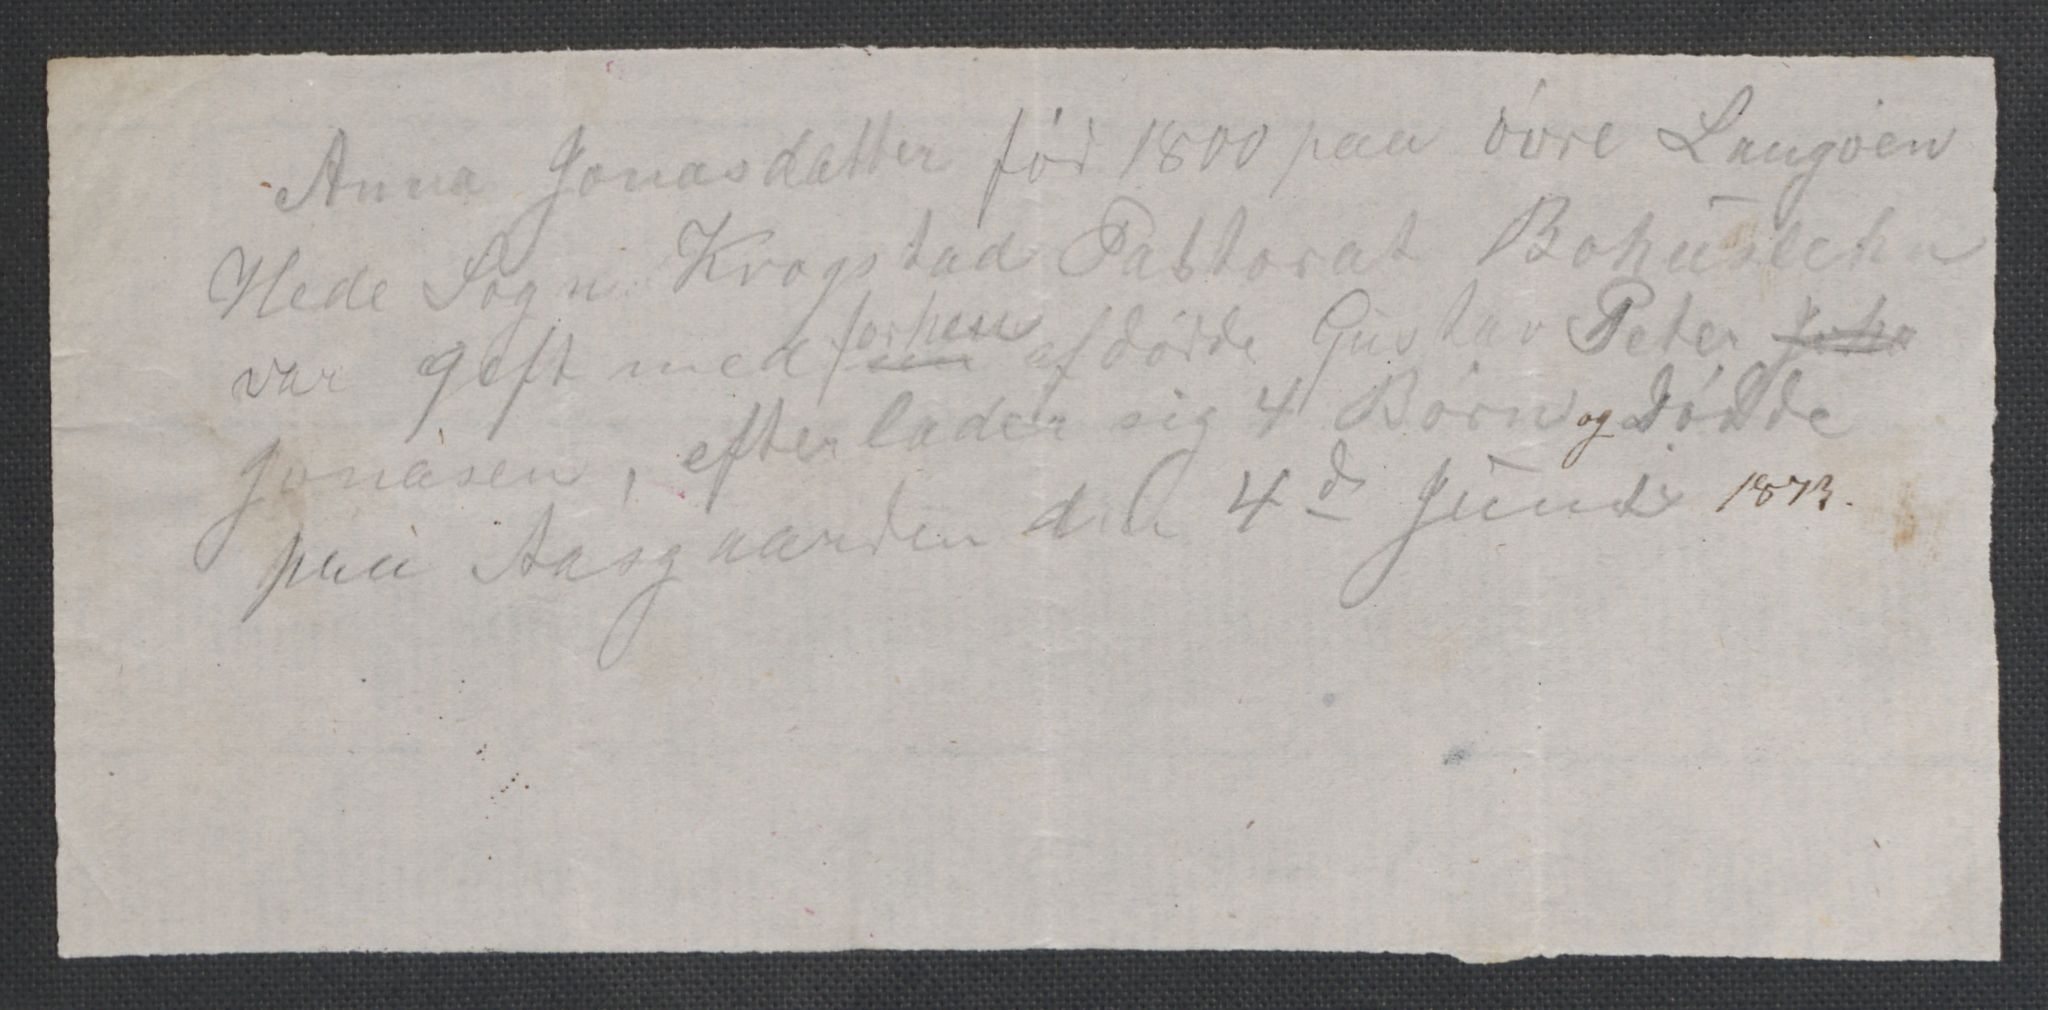 Anna Jonasdatter fød 1800 paa övre Langöen
Hede Sogn Krogstad Pastorat Bohuslehn
var gift med forhen afdøde Gustav Peter
Jonasen, efterlader sig 4 Börn og dödde
paa Aasgaarden d. 4d Juni 1873.